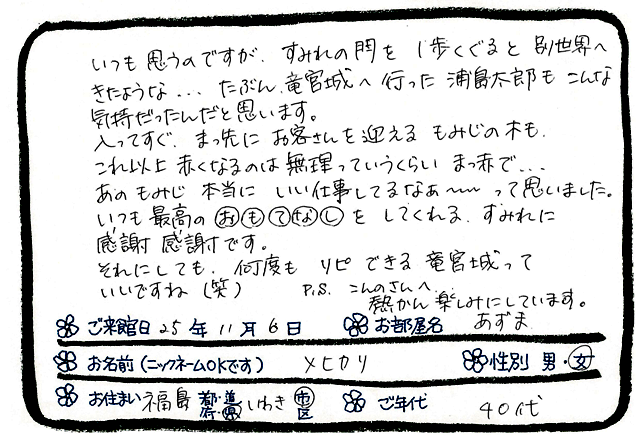 いつも思うのですが、すみれの門を1歩くぐると別世界へ
きたような... たぶん、竜宮城へ行った浦島太郎もこんな
気持だったんだと思います。
入ってすぐ、まっ先にお客さんを迎えるもみじの木も、
これ以上赤くなるのは無理っていうくらいまっ赤で...
あのもみじ本当にいい仕事してるなぁ〜〜って思いました。
いつも最高のおもてなしをしてくれる、すみれに
感謝感謝です。
それにしても、何度もリピできる竜宮城って
いいですね(笑) P.S. こんのさんへ...
熱かん楽しみにしています。
ご来館日 25年11月6日 お部屋名 あずま
お名前(ニックネームOKです) メヒカリ 性別 男・女
お住まい 福島 都・道・府・県 いわき 市 区 ご年代 40代